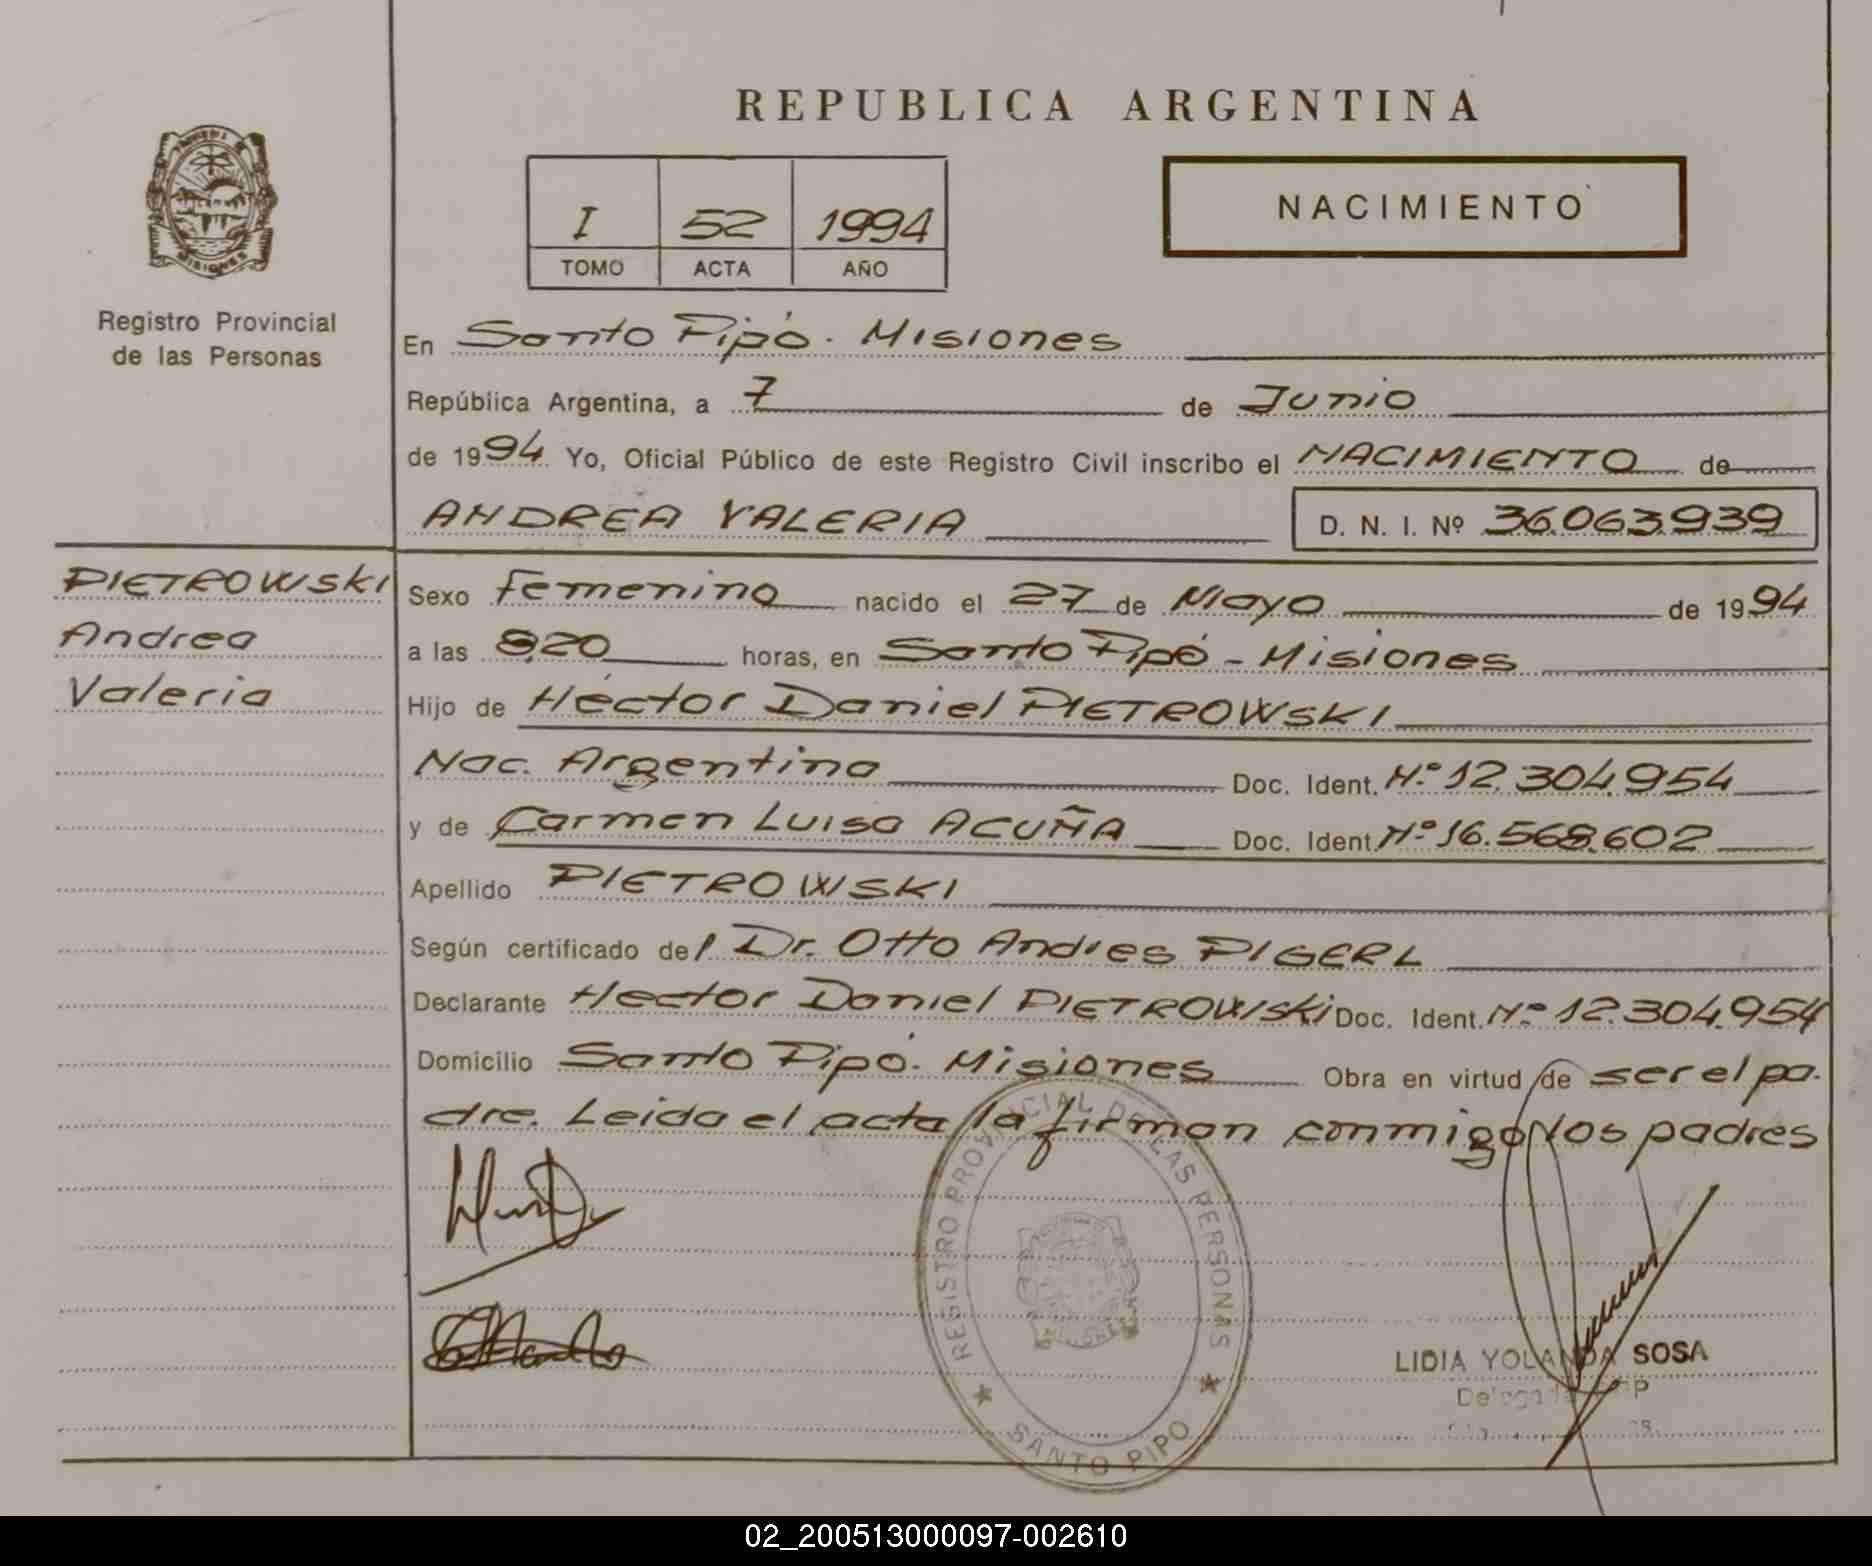 REPUBLICA ARGENTINA
I 52 1994
TOMO ACTA AÑO
NACIMIENTO
MISIONES
Registro Provincial
de las Personas
En Santo Pipó. Misiones
República Argentina, a 7 de Junio
de 1994. Yo, Oficial Público de este Registro Civil inscribo el NACIMIENTO de
ANDREA VALERIA D. N. I. Nº 36.063.939
PIETROWSKI
Andrea
Valeria
Sexo Femenino nacido el 27 de Mayo de 1994
a las 8,20 horas, en Santo Pipó - Misiones
Hijo de Héctor Daniel PIETROWSKI
Nac. Argentina Doc. Ident. Nº 12.304.954
y de Carmen Luisa ACUÑA Doc. Ident. Nº 16.568.602
Apellido PIETROWSKI
Según certificado del Dr. Otto Andres PIGERL
Declarante Hector Daniel PIETROWSKI Doc. Ident. Nº 12.304.954
Domicilio Santo Pipó. Misiones Obra en virtud de ser el pa-
dre. Leida el acta la firman conmigo los padres
REGISTRO PROVINCIAL DE LAS PERSONAS
SANTO PIPO
LIDIA YOLANDA SOSA
02_200513000097-002610